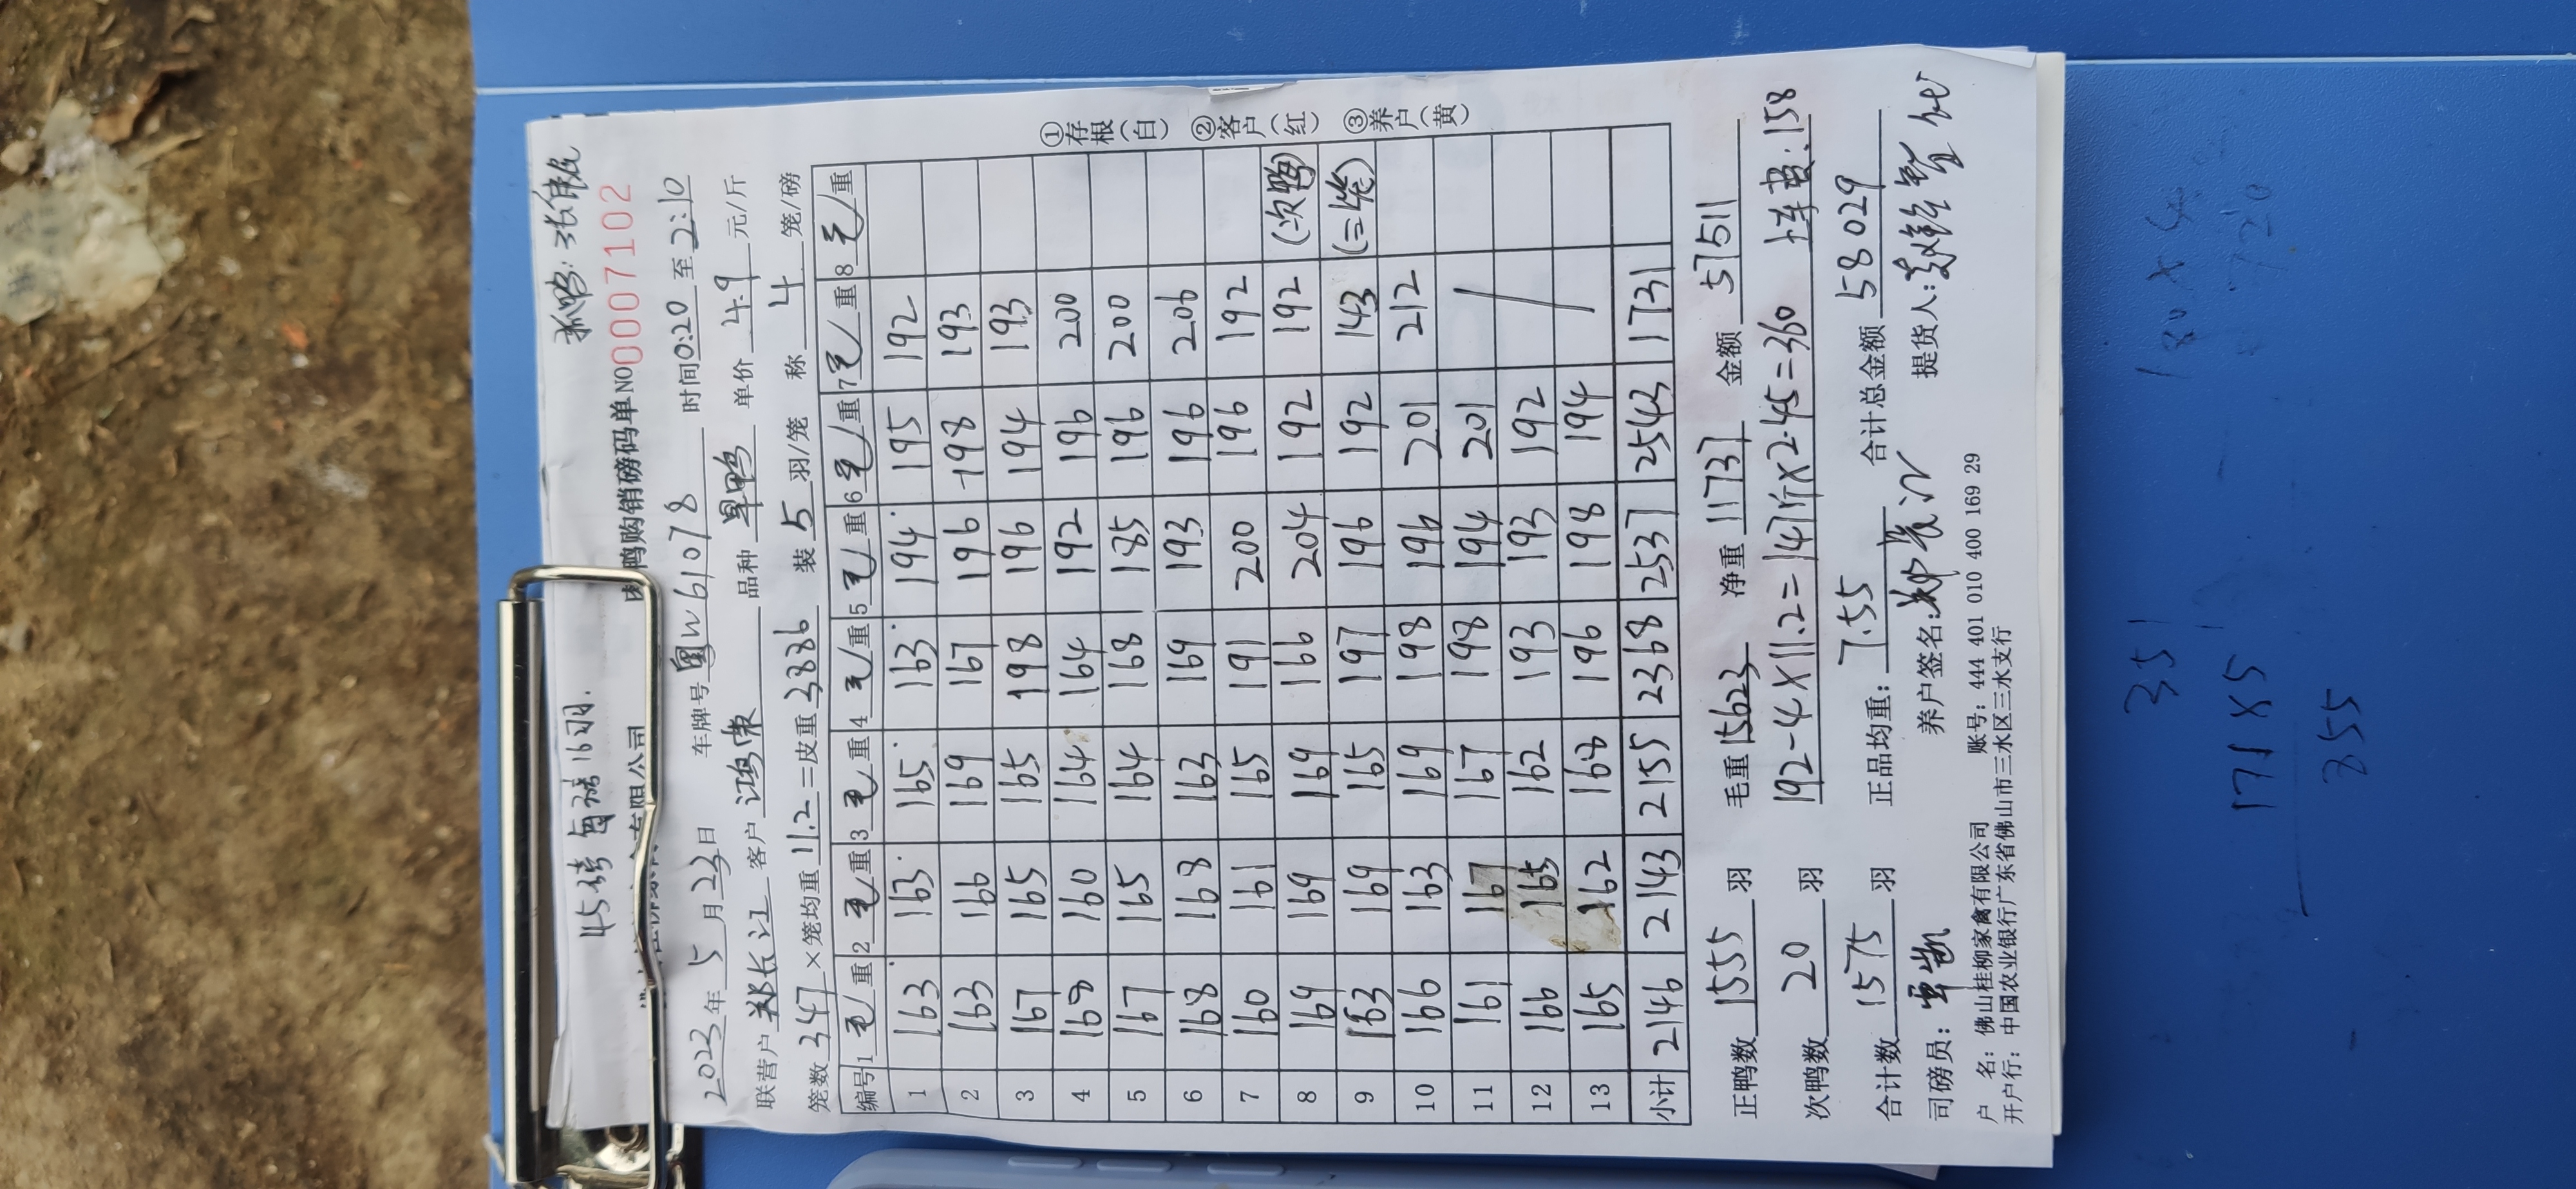 45袋 每袋16羽.
抓鸭:张伟
有限公司
鸭购销磅码单 NO 0007102
2023年5月23日 车牌号 粤W61078 时间 0:20 至 2:10
联营户 郑长江 客户 品种 单价 4.9 元/斤
笼数 347 ×笼均重 11.2 =皮重 3886 装 5 羽/笼 称 4 笼/磅
编号 1 毛/重 2 毛/重 3 毛/重 4 毛/重 5 毛/重 6 毛/重 7 毛/重 8 毛/重
1 163 163 165 163 194 195 192
2 163 166 169 167 196 198 193
3 167 165 165 198 196 194 193
4 168 160 164 164 192 196 200
5 167 165 164 168 185 196 200
6 168 168 163 169 193 196 206
7 160 161 165 191 200 196 192
8 169 169 169 166 204 192 192 (次鸭)
9 163 169 165 197 196 192 143 (二笼)
10 166 163 169 198 196 201 212
11 161 167 167 198 194 201 /
12 166 165 162 193 193 192 /
13 165 162 168 196 198 194 /
小计 2146 2143 2155 2368 2537 2543 1731
①存根(白) ②客户(红) ③养户(黄)
正鸭数 1555 羽 毛重 15623 净重 11737 金额 57511
次鸭数 20 羽 192-4×11.2=147斤×2.45=360 上车费:158
合计数 1575 羽 正品均重: 7.55 合计总金额 58029
司磅员: 养户签名:郑长江 提货人:
户 名: 佛山桂柳家禽有限公司 账号: 444 401 010 400 169 29
开户行: 中国农业银行广东省佛山市三水区三水支行
35
171×5
855
180×4
720